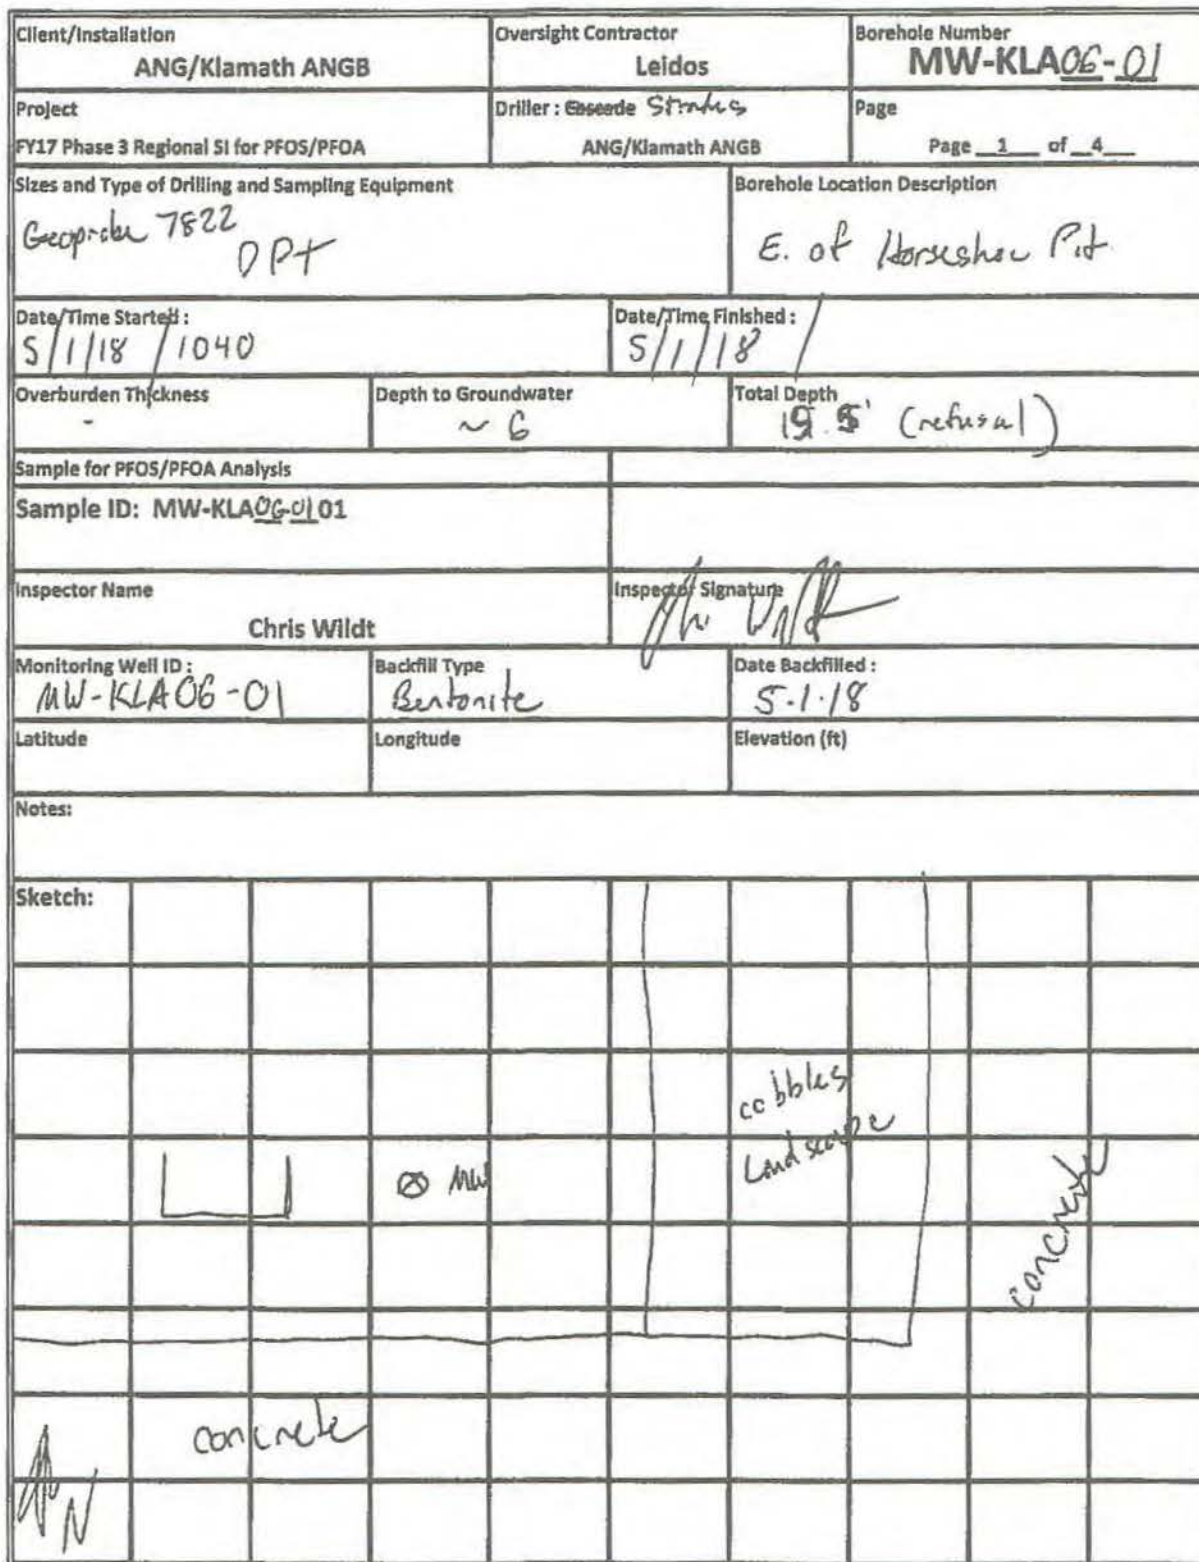 Client/Installation
ANG/Klamath ANGB
Oversight Contractor
Leidos
Borehole Number
MW-KLA06-01
Project
FY17 Phase 3 Regional SI for PFOS/PFOA
Driller : Cascade Stratus
ANG/Klamath ANGB
Page
Page 1 of 4
Sizes and Type of Drilling and Sampling Equipment
Geoprobe 7822
DPT
Borehole Location Description
E. of Horseshoe Pit
Date/Time Started :
5/1/18 / 1040
Date/Time Finished :
5/1/18 /
Overburden Thickness
-
Depth to Groundwater
~ 6
Total Depth
(refusal)
Sample for PFOS/PFOA Analysis
Sample ID: MW-KLA06-0101
Inspector Name
Chris Wildt
Inspector Signature
Monitoring Well ID :
MW-KLA06-01
Backfill Type
Bentonite
Date Backfilled :
5-1-18
Latitude
Longitude
Elevation (ft)
Notes:
Sketch:
cobbles
Landscape
MW
concrete
concrete
N